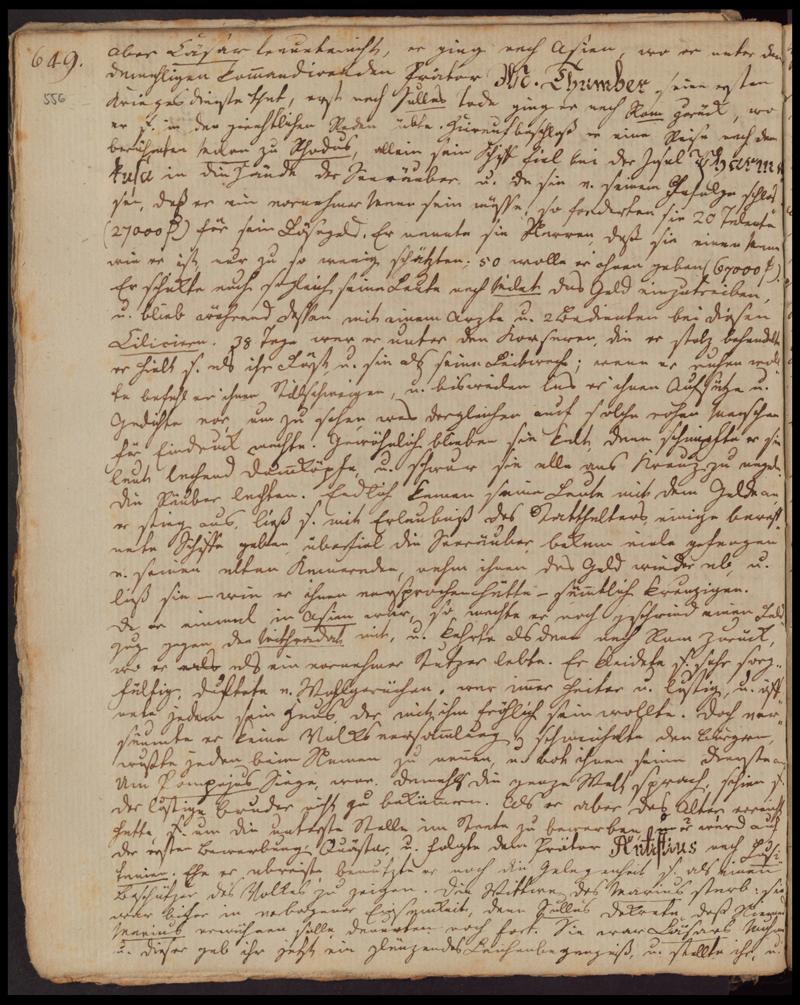 649.
556
aber Cäsar traute nicht, er ging nach Asien, wo er unter dem
damahligen Commandirenden Prätor M. Thumber seine ersten
Kriegesdienste that, erst nach Sullas Tode ging er nach Rom zurück, wo
er s. in den gerichtlichen Reden übte. Hierauf beschloß er eine Reise nach dem
berühmten zu Rhodus, allein sein Schiff fiel bei der Insel Pharma
kusa in die Hände der Seeräuber, u. da sie v. seinem Gefolge schlos
sen, daß er ein vornehmer Mann sein müsse, so forderten sie 20 Talente
(27000 ) für sein Lösegeld. Er nannte sie Narren, daß sie einen Mann
wie er ist, nur zu so wenig schätzten; 50 wolle er ihnen geben (67000 ).
Er schickte auch sogleich seine Leute nach Milet das Geld einzutreiben,
u. blieb während dessen mit einem Arzte u. 2 Bedienten bei diesen
Ciliciern. 38 Tage war er unter den Korsaren, die er stolz behandelte
er hielt s. als ihr Fürst, u. sie als seine Leibwache; wenn er ruhen woll
te befahl er ihnen Stillschweigen, u. bisweilen las er ihnen Aufsätze u.
Gedichte vor, um zu sehen was dergleichen auf solche rohen Menschen
für Eindruck machte. Gewöhnlich blieben sie kalt, dann schimpfte er sie
laut lachend Dummköpfe, u. schwur sie alle ans Kreuz zu nageln.
Die Räuber lachten. Endlich kamen seine Leute mit dem Gelde an,
er stieg aus, ließ s. mit Erlaubniß des Statthalters einige bewaff
nete Schiffe geben, überfiel die Seeräuber, bekam viele gefangen
v. seinen alten Kameraden, nahm ihnen das Geld wieder ab, u.
ließ sie – wie er ihnen versprochen hatte – sämtlich kreuzigen.
Da er einmal in Asien war, so machte er noch geschwind einen Feld
zug gegen den Mithradat mit, u. kehrte alsdann nach Rom zurück,
wo er als ein vornehmer Stutzer lebte. Er kleidete s. sehr sorg-
fältig, duftete v. Wohlgerüchen, war immer heiter u. lustig, u. öff
nete jedem sein Haus, der mit ihm fröhlich sein wollte. Doch ver-
säumte er keine Volksversammlung, schmeichelte den Bürgern,
wußte jeden beim Namen zu nennen, u. bot ihnen seine Dienste an
Um Pompejus Siege, wovon damahls die ganze Welt sprach, schien s.
der lustige Bruder nicht zu bekümmern. Als er aber das Alter erreicht
hatte, s. um die unterste Stelle im Staate zu bewerben er ward auf
der ersten Bewerbung Quästor, u. folgte dem Prätor Antistius nach Lusi
tanien. Ehe er abreiste, benutzte er noch die Gelegenheit s. als einen
Beschützer des Volkes zu zeigen. Die Wittwe des Marius starb; sie
war bisher in verborgener Einsamkeit, denn Sullas Dekrete, daß Niemand
Marius erwähnen solle dauerten noch fort. Sie war Cäsars Muhme
u. dieser gab ihr jetzt ein glänzendes Leichenbegängniß, u. stellte ihr, u.